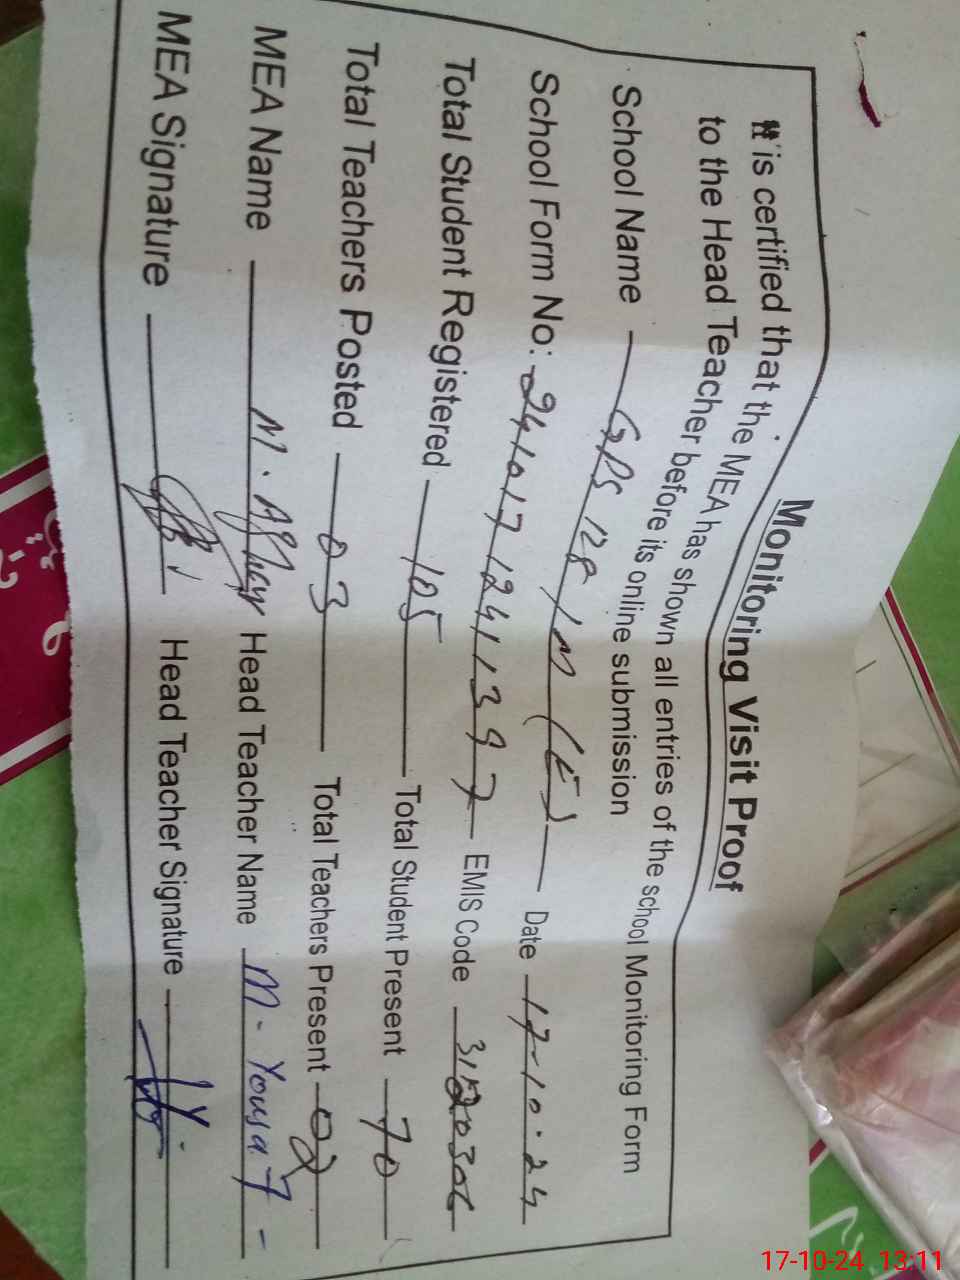 Monitoring Visit Proof
It is certified that the MEA has shown all entries of the school Monitoring Form
to the Head Teacher before its online submission
School Name GPS 128/M (E) Date 17-10-24
School Form No: 24101712411397 EMIS Code
Total Student Registered 105 Total Student Present 70
Total Teachers Posted 03 Total Teachers Present 02
MEA Name M. Head Teacher Name M. Yousaf
MEA Signature Head Teacher Signature
17-10-24 13:11